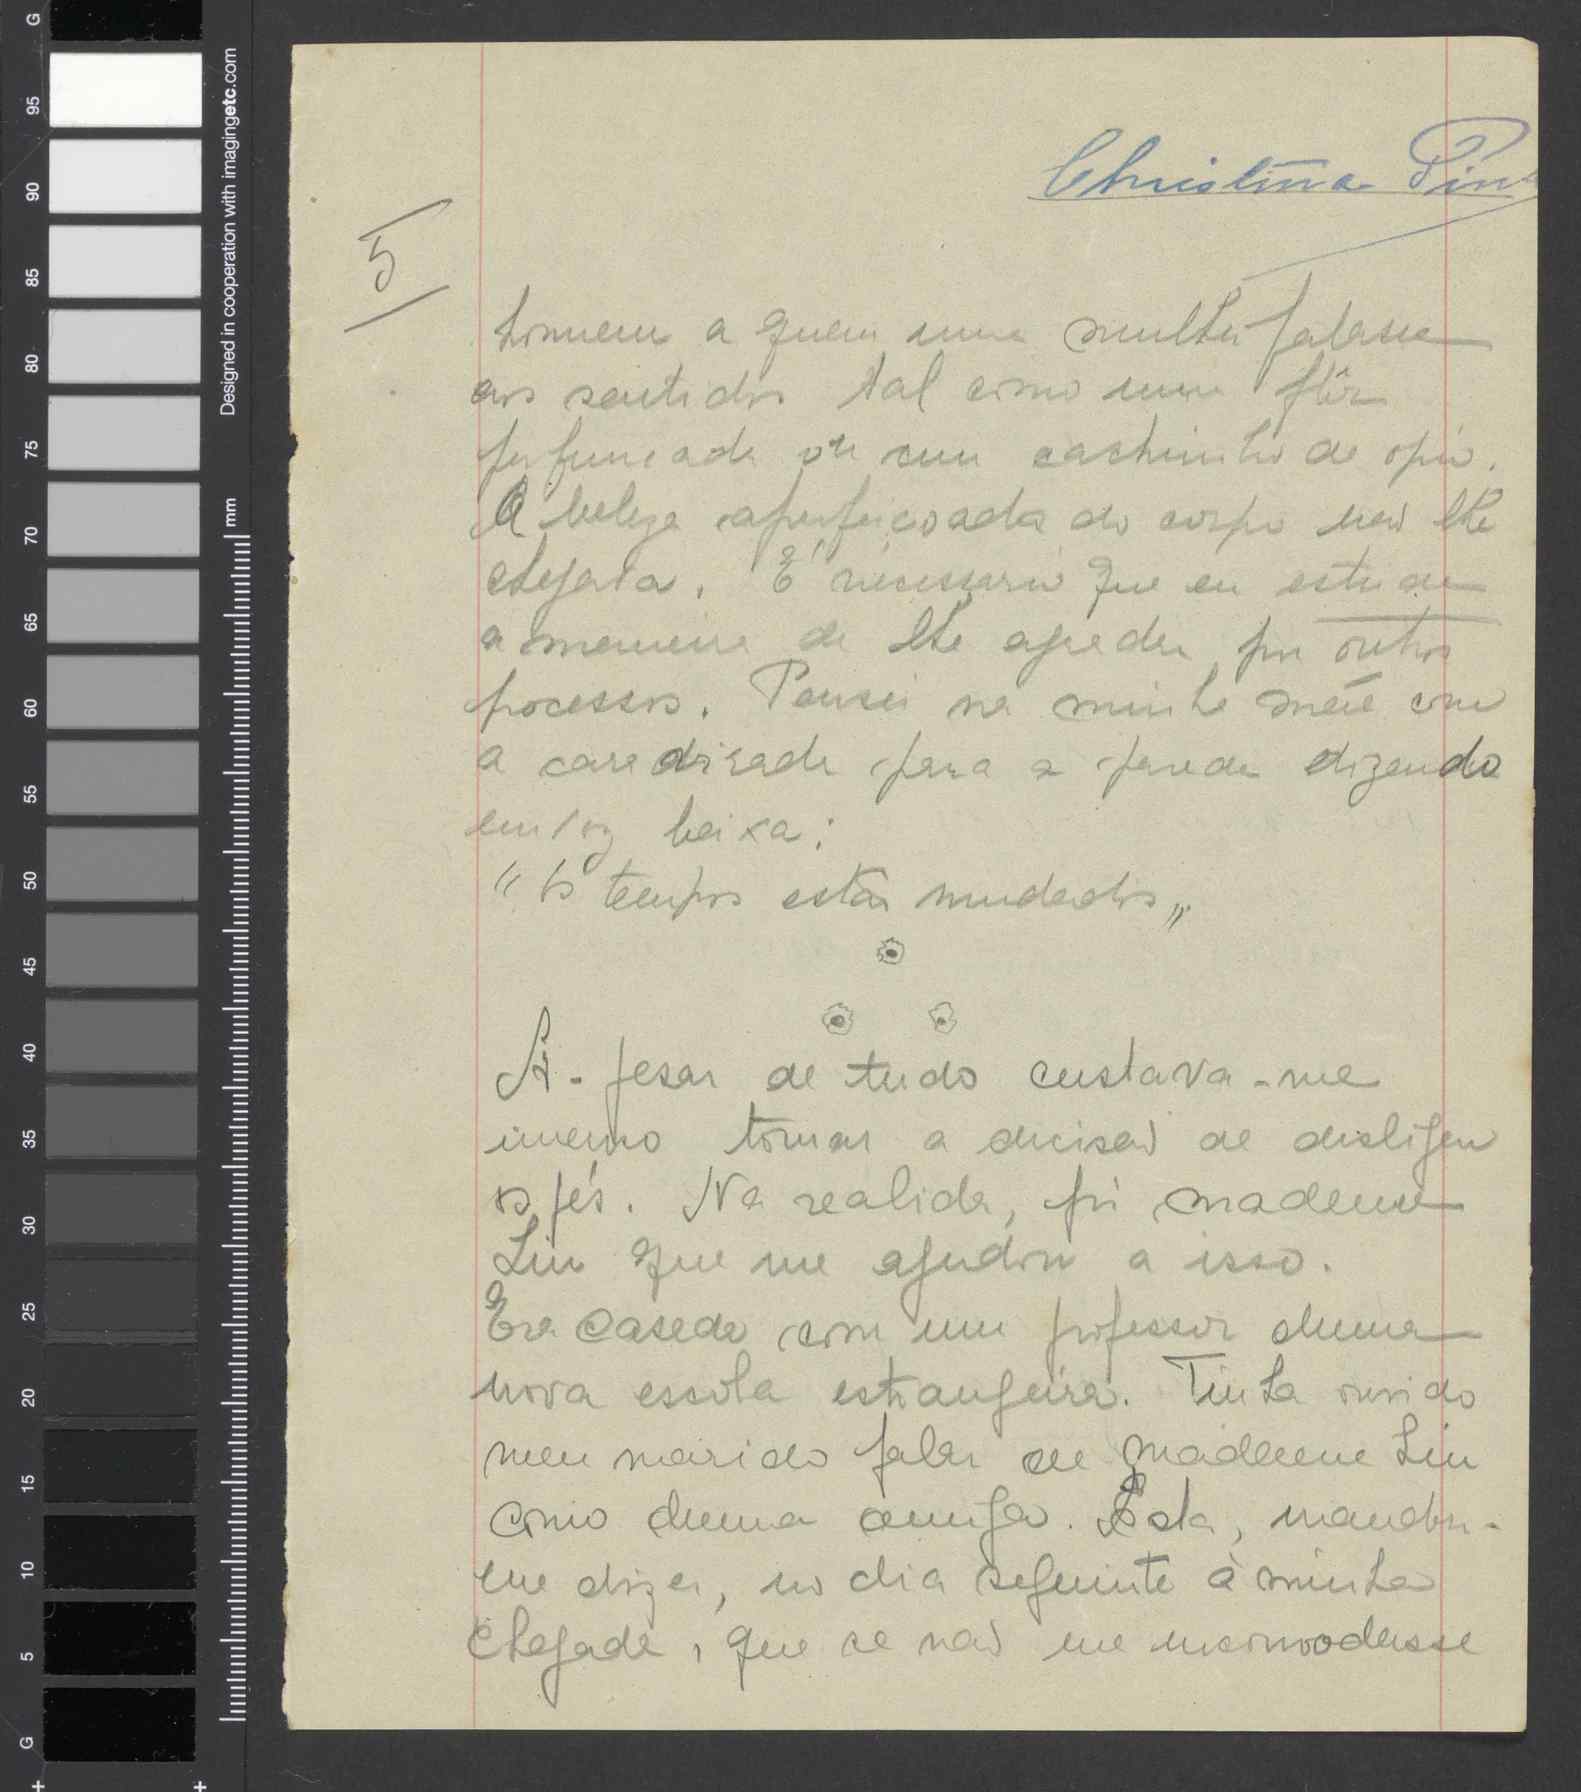 Christina Pin
5
homem a quem uma mulher falasse
aos sentidos tal como uma flôr
perfumada ou um cachimbo de opio.
A beleza aperfeiçoada do corpo não lhe
chegava. É necessario que eu estude
a maneira de lhe agradar por outros
processos. Pensei na minha mãe com
a cara virada para a parede dizendo
em voz baixa:
"Os tempos estão mudados"
A-pesar de tudo custava-me
imenso tomar a decisão de desligar
os pés. Na realidade, foi madame
Liu que me ajudou a isso.
Era casada com um professor duma
nova escola estrangeira. Tinha ouvido
meu marido falar de Madame Liu
como duma amiga. Esta, mandou-
me dizer, no dia seguinte à minha
chegada, que se não me incomodasse
G
95
90
85
80
75
70
65
60
55
50
45
40
35
30
25
20
15
10
5
G
Designed in cooperation with imagingetc.com
mm